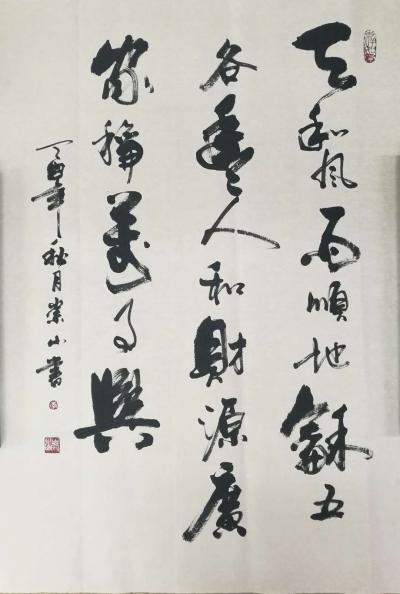 天和風雨順地龢五
谷豐人和財源廣
家龢萬事興
丁酉年秋月崇山書